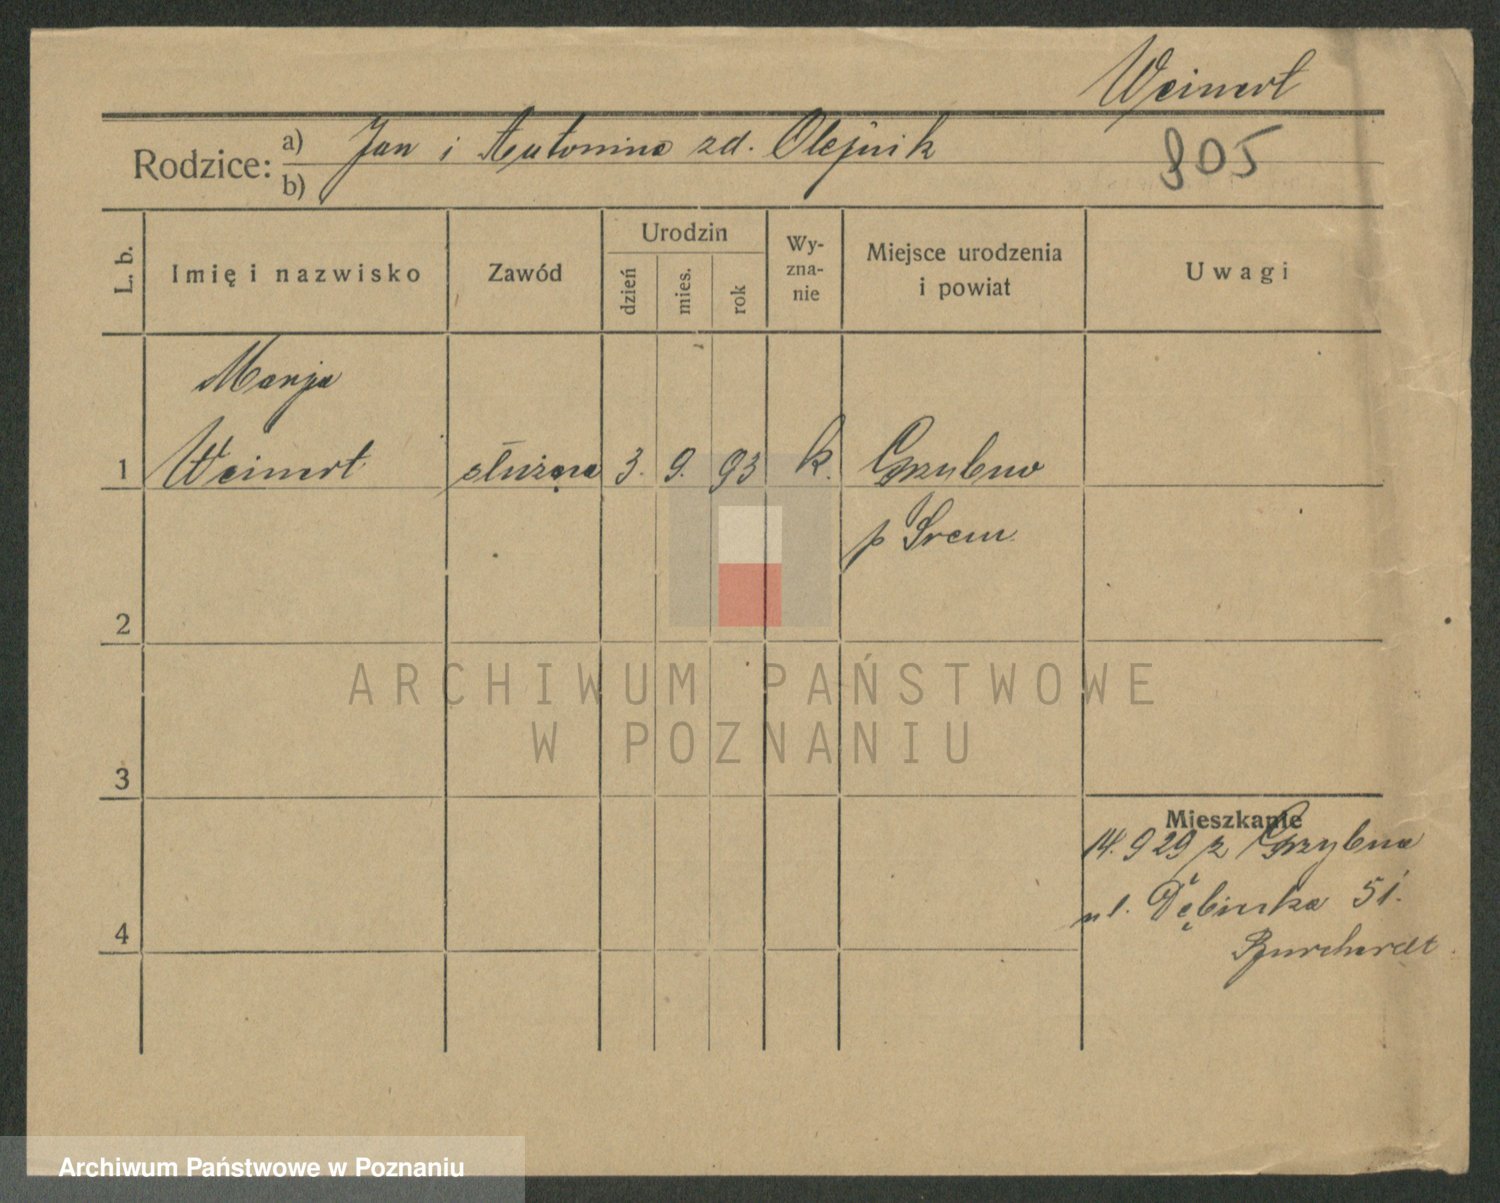 Weinert
Rodzice: a) Jan i Antonina zd. Olejnik
b)
805
L. b.
Imię i nazwisko
Zawód
Urodzin
dzień
mies.
rok
Wy-
zna-
nie
Miejsce urodzenia
i powiat
Uwagi
Marja
1 Weinert służąca 3. 9. 93 k. Grzybno
p Śrem
2
3
4
Mieszkanie
14. 9 29 z Grzybna
ul. Dębinka 51.
Burchardt
ARCHIWUM PAŃSTWOWE
W POZNANIU
Archiwum Państwowe w Poznaniu